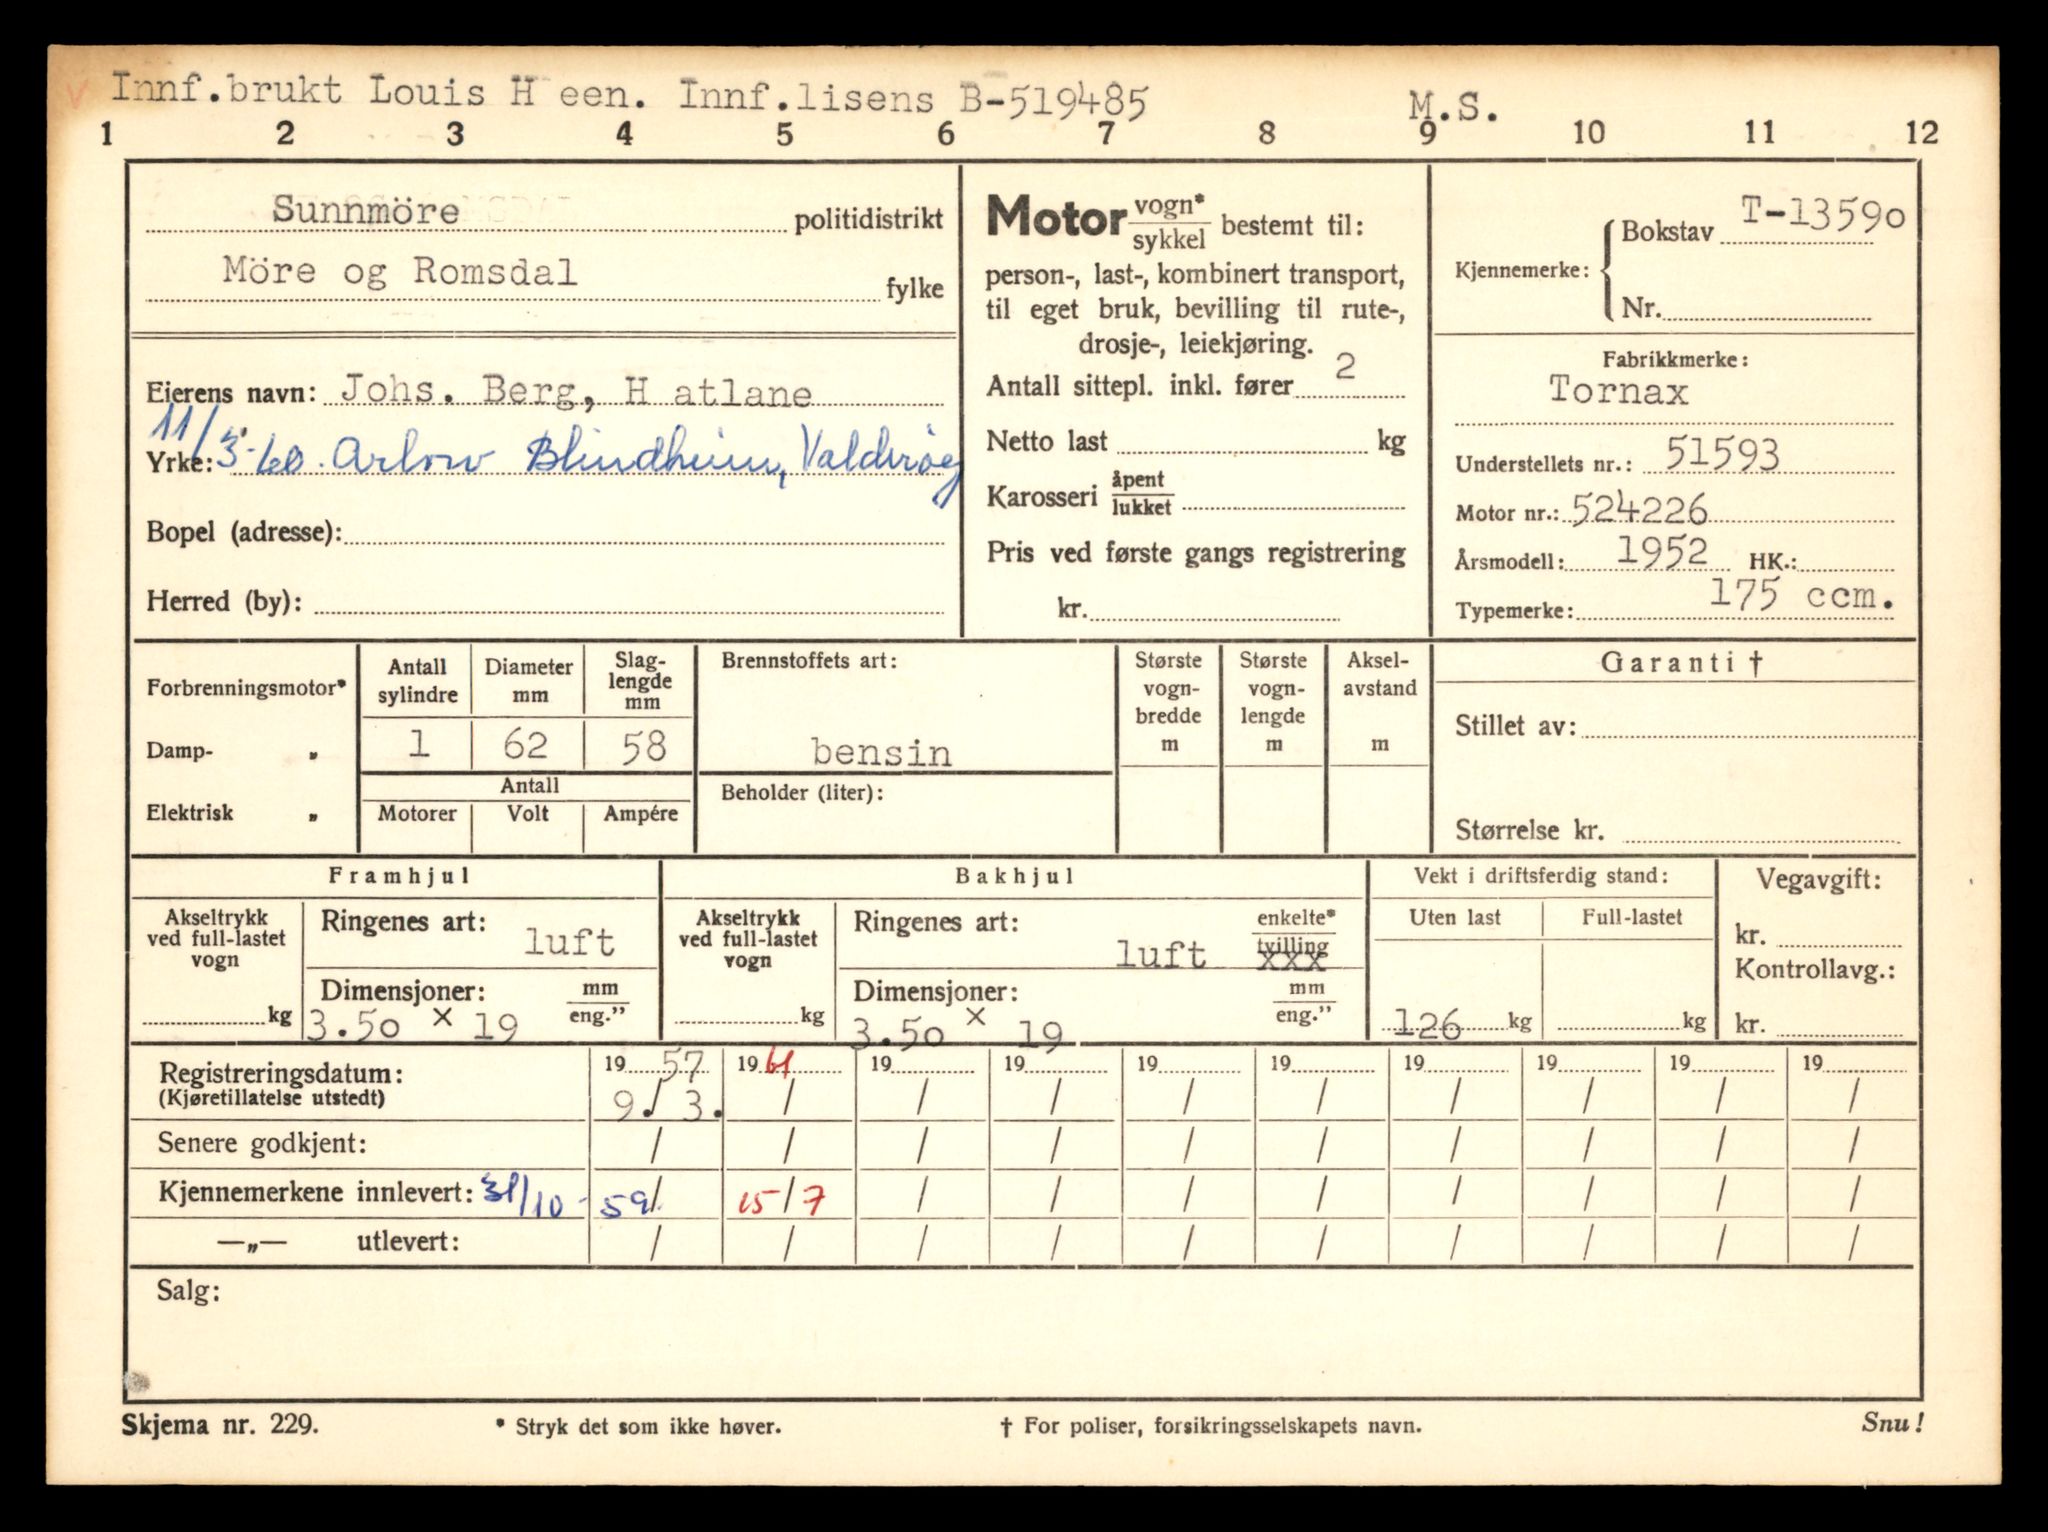 Innf.brukt Louis H een. Innf.lisens B-519485 M.S.
1 2 3 4 5 6 7 8 9 10 11 12
Sunnmöre politidistrikt
Möre og Romsdal fylke
Eierens navn: Johs. Berg, H atlane
11/3-60. Arlow Blindheim, Valderøy
Yrke:
Bopel (adresse):
Herred (by):
Motor vogn*
sykkel bestemt til:
person-, last-, kombinert transport,
til eget bruk, bevilling til rute-,
drosje-, leiekjøring.
Antall sittepl. inkl. fører 2
Netto last kg
Karosseri åpent
lukket
Pris ved første gangs registrering
kr.
Kjennemerke: Bokstav T-13590
Nr.
Fabrikkmerke:
Tornax
Understellets nr.: 51593
Motor nr.: 524226
Årsmodell: 1952 HK.:
Typemerke: 175 ccm.
Forbrenningsmotor*
Damp- „
Elektrisk „
Antall sylindre
Diameter mm
Slag-
lengde
mm
1 62 58
Antall
Motorer Volt Ampére
Brennstoffets art:
bensin
Beholder (liter):
Største
vogn-
bredde
m
Største
vogn-
lengde
m
Aksel-
avstand
m
Garanti †
Stillet av:
Størrelse kr.
Framhjul
Akseltrykk
ved full-lastet
vogn
kg
Ringenes art:
luft
Dimensjoner: mm
eng."
3.50 x 19
Bakhjul
Akseltrykk
ved full-lastet
vogn
kg
Ringenes art: enkelte*
luft tvilling
xxx
Dimensjoner: mm
eng."
3.50 x 19
Vekt i driftsferdig stand:
Uten last Full-lastet
126 kg kg
Vegavgift:
kr.
Kontrollavg.:
kr.
Registreringsdatum: 19 57 19 61 19 19 19 19 19 19 19 19
(Kjøretillatelse utstedt) 9./ 3. / / / / / / / / /
Senere godkjent: / / / / / / / / / /
Kjennemerkene innlevert: 31/10-59 / 15/7 / / / / / / / /
—„— utlevert: / / / / / / / / / /
Salg:
Skjema nr. 229. * Stryk det som ikke høver. † For poliser, forsikringsselskapets navn. Snu!